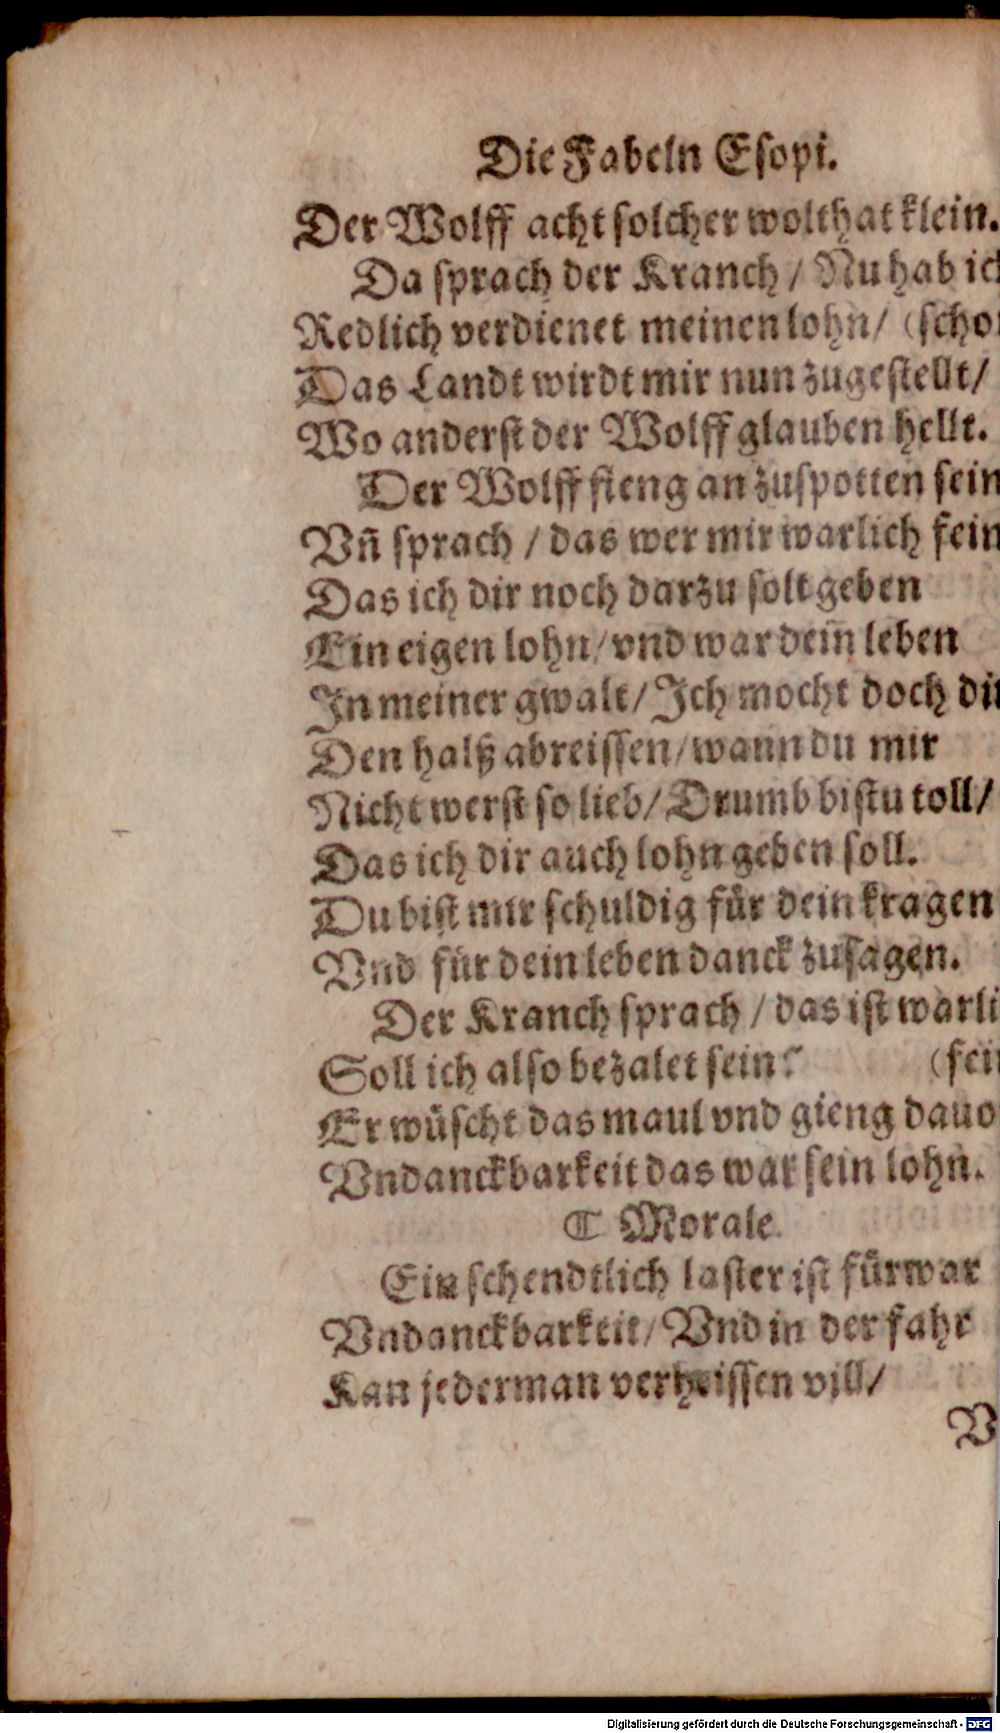 Die Fabeln Esopi.
Der Wolff acht solcher wolthat klein.
Da sprach der Kranch / Nu hab ich
Redlich verdienet meinen lohn/ (scho
Das Landt wirdt mir nun zugestellt/
Wo anderst der Wolff glauben hellt.
Der Wolff fieng an zuspotten sein
Vñ sprach / das wer mir warlich fein
Das ich dir noch darzu solt geben
Ein eigen lohn/ vnd war dein leben
In meiner gwalt/ Ich mocht doch dir
Den halß abreissen/ wann du mir
Nicht werst so lieb/ Drumb bistu toll/
Das ich dir auch lohn geben soll.
Du bist mir schuldig für dein kragen
Vnd für dein leben danck zusagen.
Der Kranch sprach / das ist warli
Soll ich also bezalet sein? (fein
Er wüscht das maul vnd gieng dauo
Vndanckbarkeit das war sein lohn.
☾ Morale.
Ein schendtlich laster ist fürwar
Vndanckbarkeit/ Vnd in der fahr
Kan jederman verheissen vill/
V
Digitalisierung gefördert durch die Deutsche Forschungsgemeinschaft - DFG